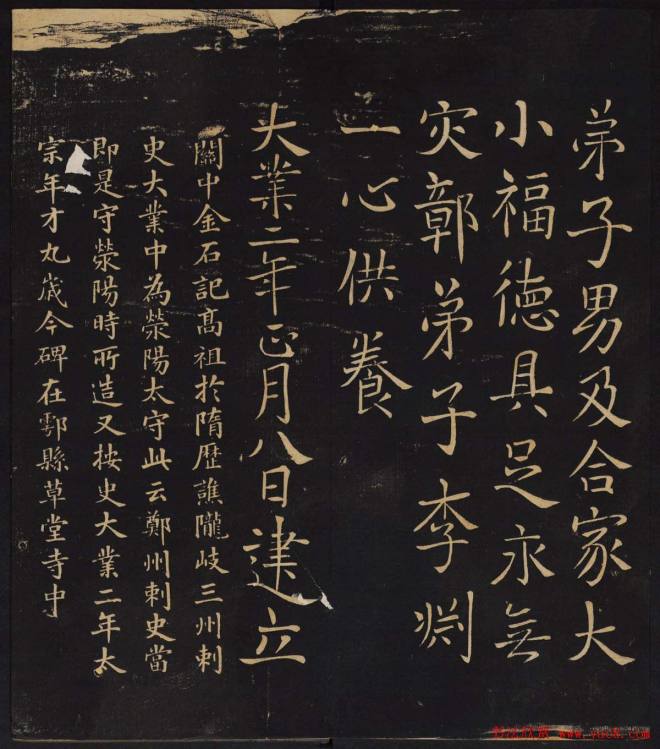 弟子男及合家大
小福德具足永無
灾鄣弟子李渊
一心供養
大業二年正月八日建立
關中金石記高祖於隋歷譙隴岐三州刺
史大業中為滎陽太守此云鄭州刺史當
即是守滎陽時所造又按史大業二年太
宗年才九歲今碑在鄠縣草堂寺中